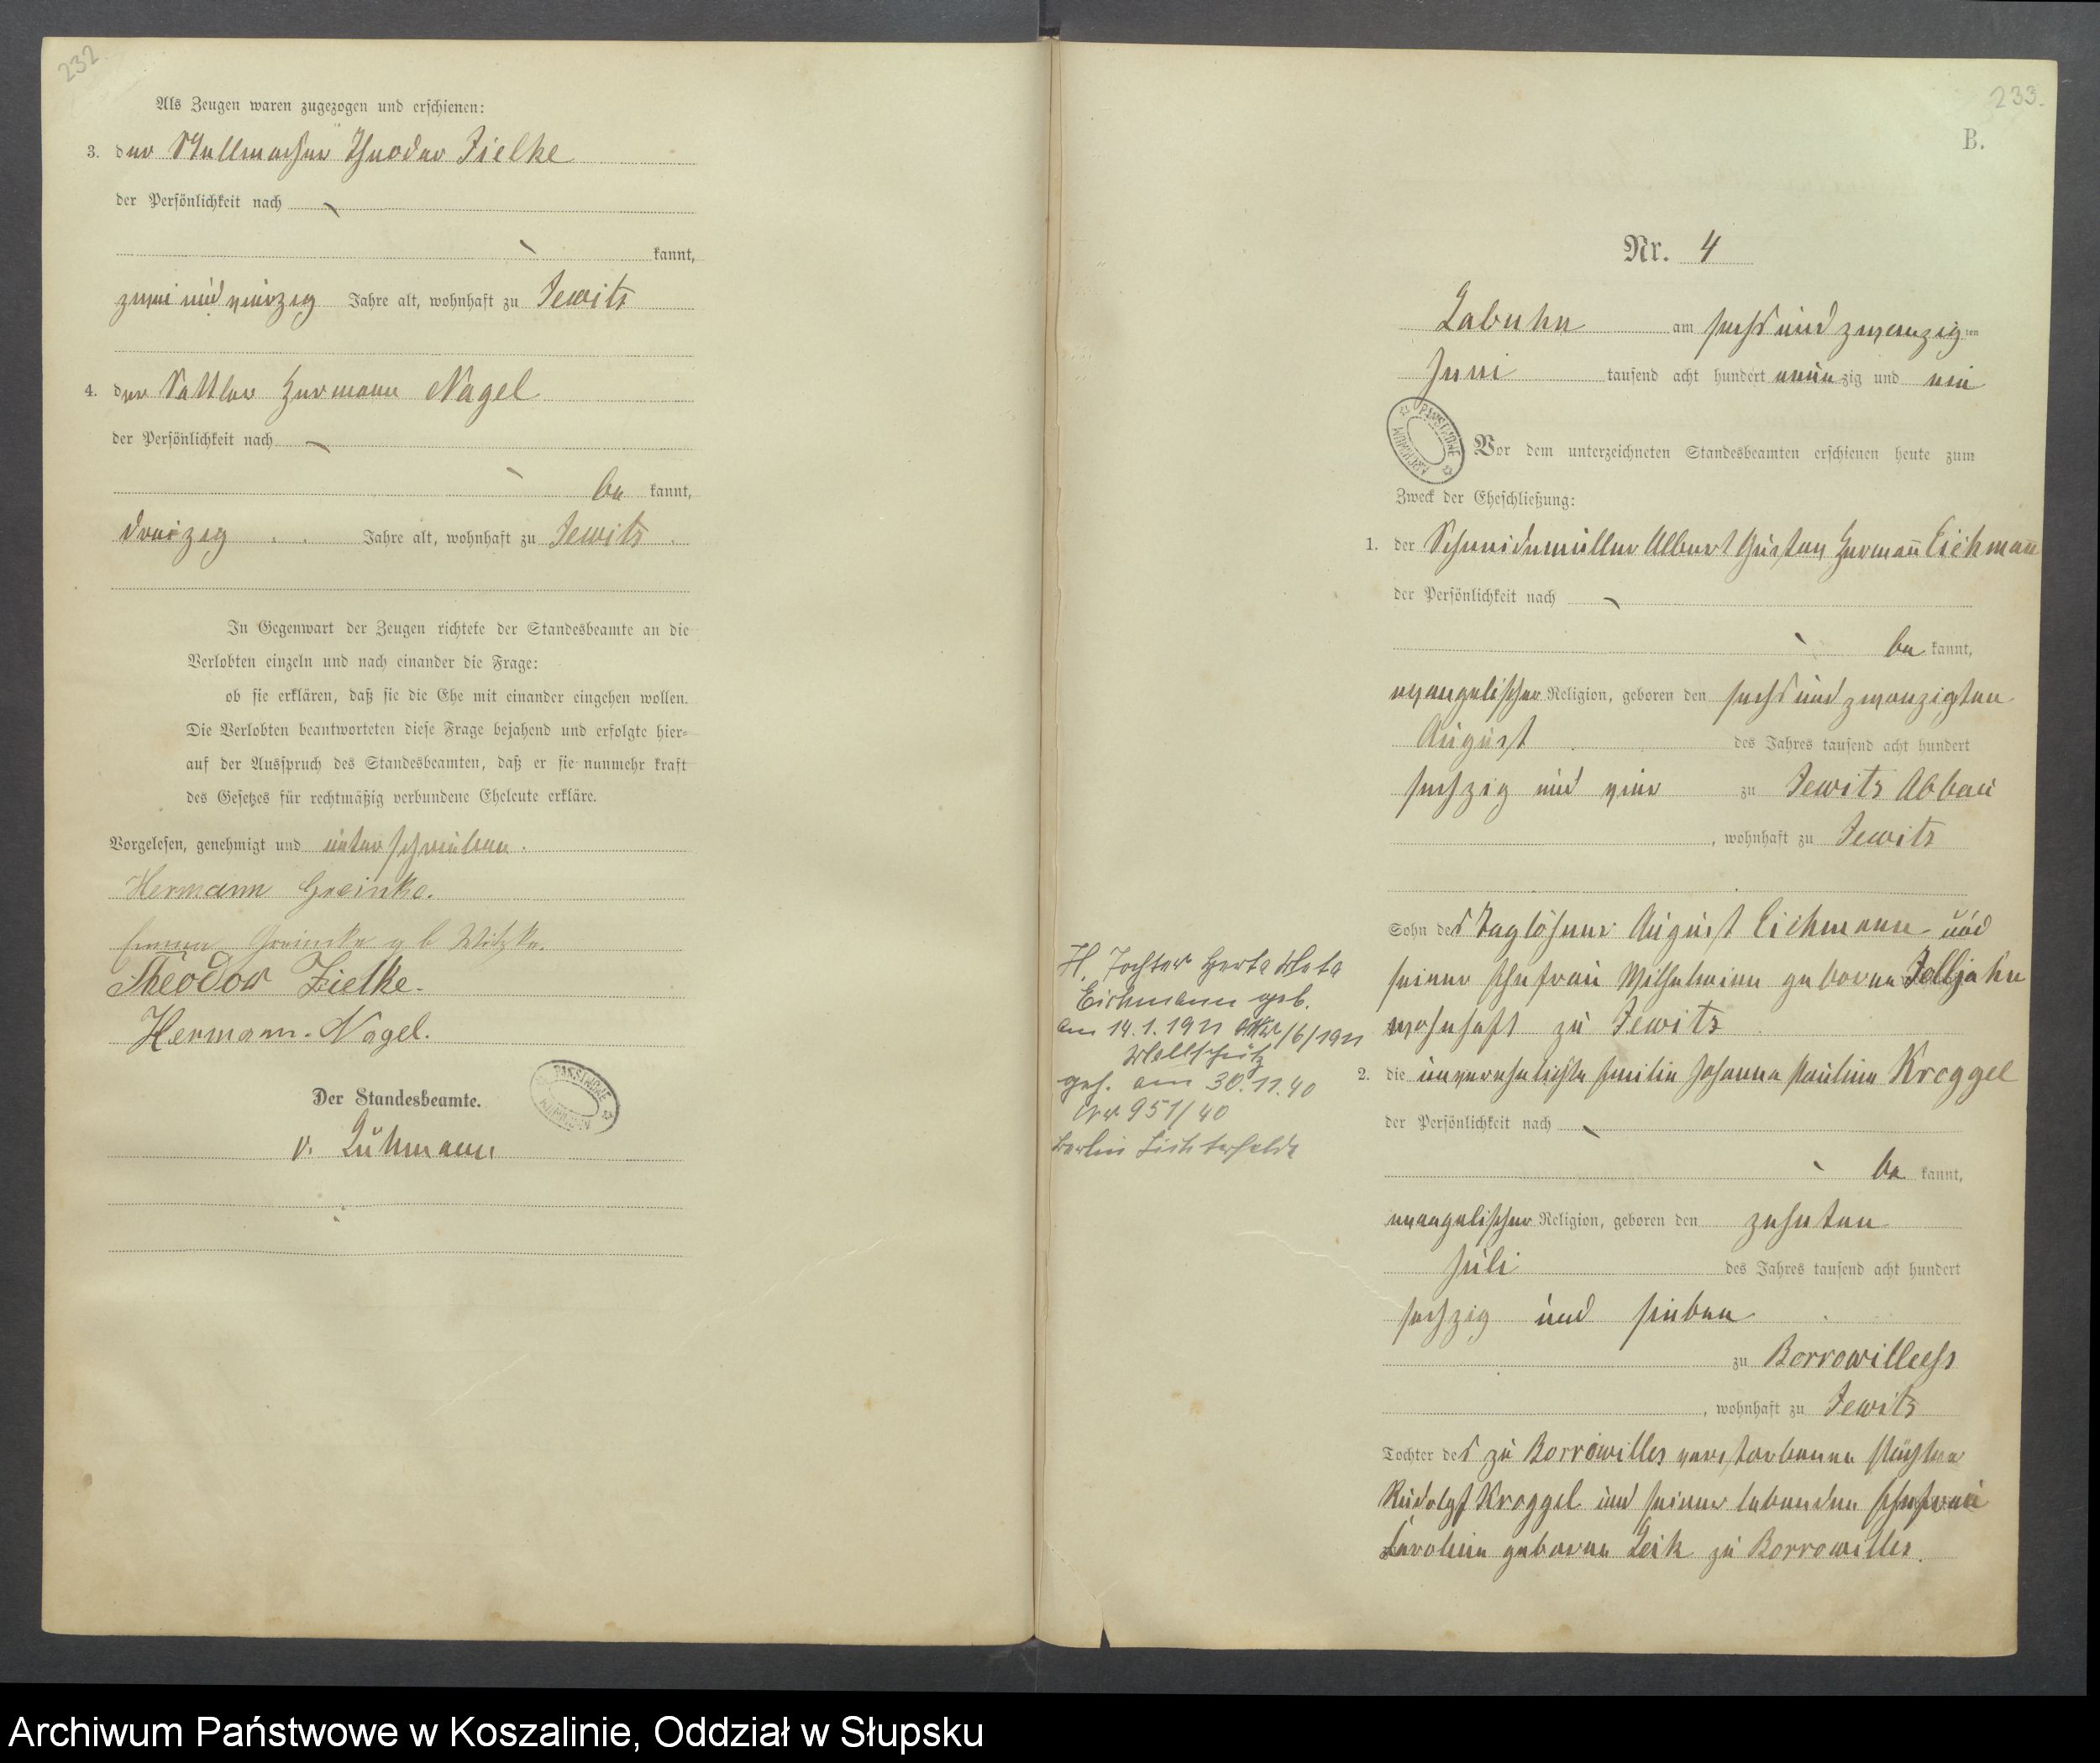 232
Als Zeugen waren zugezogen und erschienen:
3. der Stellmacher Theodor Zielke
der Persönlichkeit nach
kannt,
zwei und vierzig Jahre alt, wohnhaft zu Jewitz
4. der Sattler Hermann Nagel
der Persönlichkeit nach
be kannt,
dreizig Jahre alt, wohnhaft zu Jewitz
In Gegenwart der Zeugen richtete der Standesbeamte an die
Verlobten einzeln und nach einander die Frage:
ob sie erklären, daß sie die Ehe mit einander eingehen wollen.
Die Verlobten beantworteten diese Frage bejahend und erfolgte hier-
auf der Ausspruch des Standesbeamten, daß er sie nunmehr kraft
des Gesetzes für rechtmäßig verbundene Eheleute erkläre.
Vorgelesen, genehmigt und unterschrieben.
Hermann Greinke.
Emma Greinke geb Witzke.
Theodor Zielke.
Hermann Nagel.
Der Standesbeamte.
v. Lühmann
233.
B.
Nr. 4
Labuhn am sechs und zwanzig ten
Juni tausend acht hundert neunzig und ein
Vor dem unterzeichneten Standesbeamten erschienen heute zum
Zweck der Eheschließung:
1. der Schneidemüller Albert Gustav Hermann Eichmann
der Persönlichkeit nach
be kannt,
evangelischer Religion, geboren den sechs und zwanzigsten
August des Jahres tausend acht hundert
sechzig und vier zu Jewitz Abbau
, wohnhaft zu Jewitz
Sohn des Taglöhner August Eichmann und
seiner Ehefrau Wilhelmine geborene Zelljahn
wohnhaft zu Jewitz
2. die unverehelichte Emilie Johanna Pauline Kroggel
der Persönlichkeit nach
be kannt,
evangelischer Religion, geboren den zehnten
Juli des Jahres tausend acht hundert
sechzig und sieben
zu Borrowillees
, wohnhaft zu Jewitz
Tochter des zu Borrowilles verstorbenen Pächter
Rudolf Kroggel und seiner lebenden Ehefrau
Caroline geborene Leik zu Borrowilles.
H. Tochter Herta Meta
Eichmann geb.
am 14.1.1911 /6/1911
geh. am 30.11.40
Nr 951/40
Berlin Lichterfelde
PAŃSTWOWE ARCHIWUM
PAŃSTWOWE ARCHIWUM
Archiwum Państwowe w Koszalinie, Oddział w Słupsku